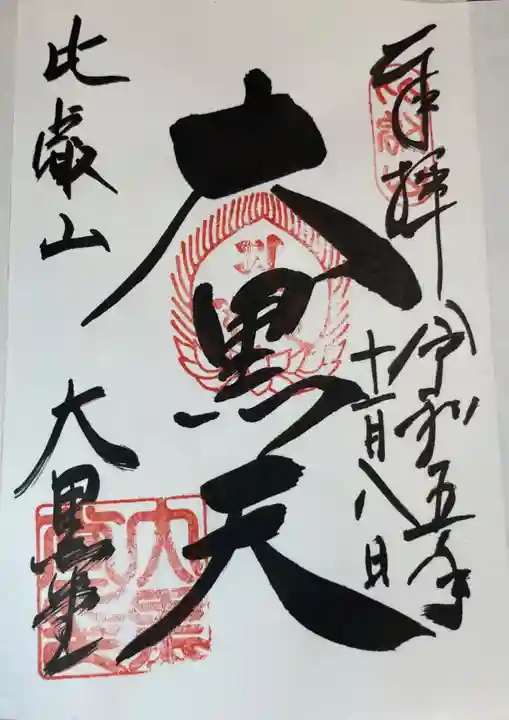 奉拝
令和五年
十二月八日
大黒天
比叡山 大黒堂